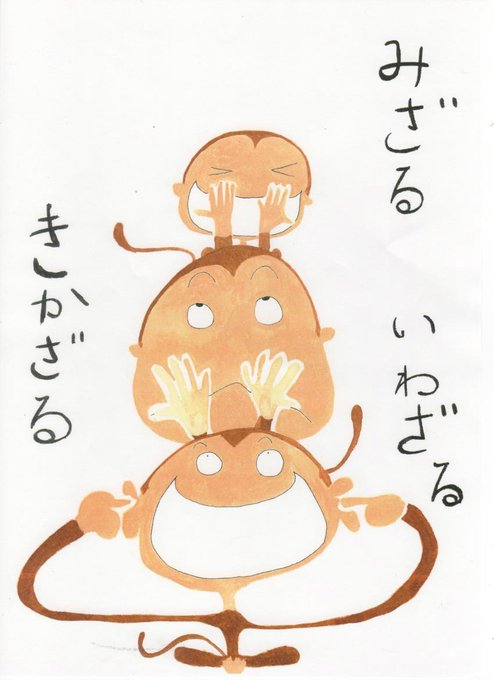 みざる
いわざる
きかざる